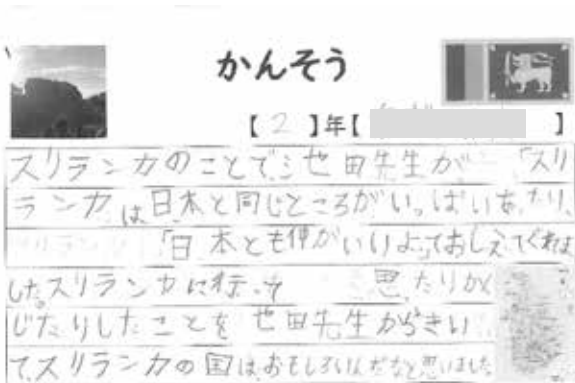 かんそう
【2】年【 】
スリランカのことで、せ田先生が、「スリ
ランカは日本と同じところがいっぱいあったり、
「日本とも仲がいいよ」っておしえてくれま
した。スリランカに行って 思ったりかん
じたりしたことをせ田先生からきい
て、スリランカの国はおもしろいんだなと思いました